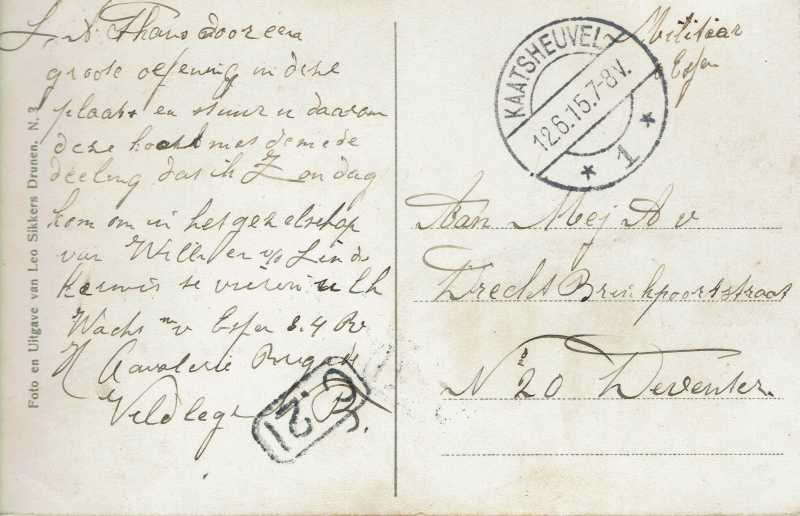 L. A. Thans door een
groote oefening in deze
plaats en stuur u daarom
deze kaart met de mede
deeling dat ik Zondag
kom om in het gezelschap
van Willem en v/d Linde
Kermis te vieren
Wachtm v Esfen 3.4 R
Cavalerie Brigade
Veldleger
Foto en Uitgave van Leo Sikkers Drunen. N. 3
KAATSHEUVEL
12.6.15.7-8V.
* 1 *
Militair
Esfen
Aan Mej A v
Drecht Brinkpoortstraat
No 20 Deventer.